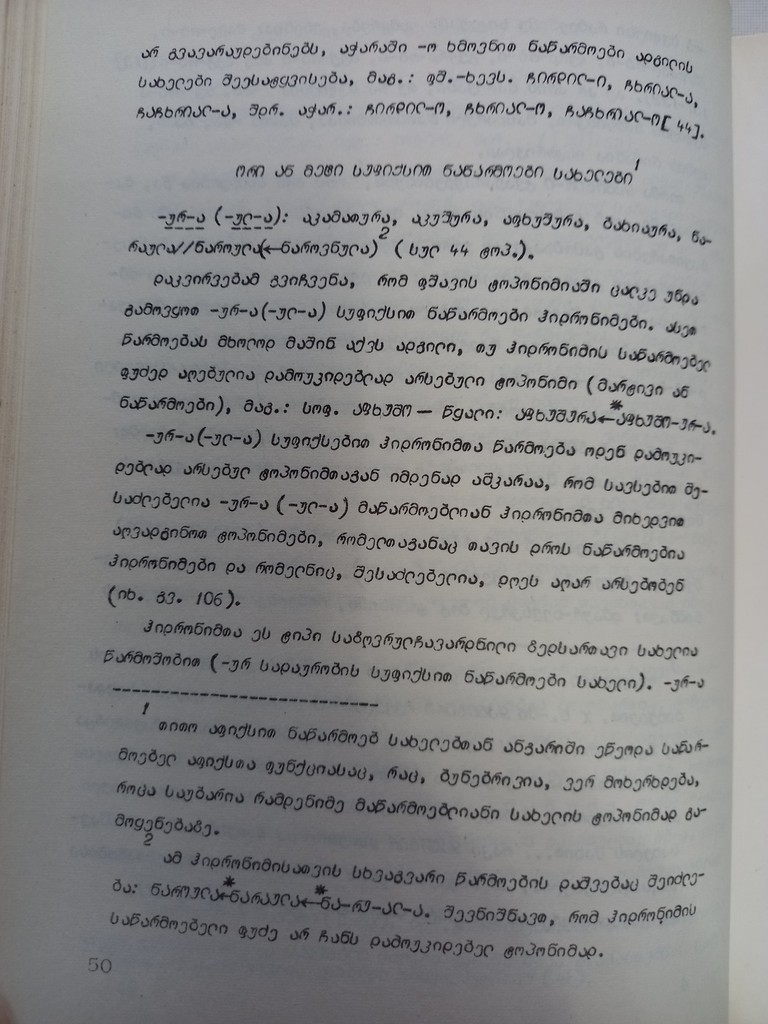 არ გვავარაუდებინებს, აჭარაში -ო ხმოვნით ნაწარმოები ადგილის
სახელები შეესატყვისება, მაგ.: ფშ.-ხევს. ჩირდილ-ი, ჩხრიალ-ა,
ჩაჩხრიალ-ა, შდრ. აჭარ.: ჩირდილ-ო, ჩხრიალ-ო, ჩაჩხრიალ-ო[ 44].
ორი ან მეტი სუფიქსით ნაწარმოები სახელები¹
-ურ-ა (-ულ-ა): აკამათურა, აკუშურა, აფხუშურა, გახიაურა, ნა-
რაულა//ნაროულა(←ნაროვნულა)² (სულ 44 ტოპ.).
დაკვირვებამ გვიჩვენა, რომ ფშავის ტოპონიმიაში ცალკე უნდა
გამოვყოთ -ურ-ა(-ულ-ა) სუფიქსით ნაწარმოები ჰიდრონიმები. ასეთ
წარმოებას მხოლოდ მაშინ აქვს ადგილი, თუ ჰიდრონიმის საწარმოებელ
ფუძედ აღებულია დამოუკიდებლად არსებული ტოპონიმი (მარტივი ან
ნაწარმოები), მაგ.: სოფ. აფხუშო — წყალი: აფხუშურა←*აფხუშო-ურ-ა.
-ურ-ა(-ულ-ა) სუფიქსებით ჰიდრონიმთა წარმოება ოდენ დამოუკი-
დებლად არსებულ ტოპონიმთაგან იმდენად აშკარაა, რომ სავსებით შე-
საძლებელია -ურ-ა (-ულ-ა) მაწარმოებლიან ჰიდრონიმთა მიხედვით
აღვადგინოთ ტოპონიმები, რომელთაგანაც თავის დროს ნაწარმოებია
ჰიდრონიმები და რომელნიც, შესაძლებელია, დღეს აღარ არსებობენ
(იხ. გვ. 106).
ჰიდრონიმთა ეს ტიპი საზღვრულჩავარდნილი ზედსართავი სახელია
წარმოშობით (-ურ სადაურობის სუფიქსით ნაწარმოები სახელი). -ურ-ა
¹ თითო აფიქსით ნაწარმოებ სახელებთან ანგარიში ეწეოდა საწარ-
მოებელ აფიქსთა ფუნქციასაც, რაც, ბუნებრივია, ვერ მოხერხდება,
როცა საუბარია რამდენიმე მაწარმოებლიანი სახელის ტოპონიმად გა-
მოყენებაზე.
² ამ ჰიდრონიმისათვის სხვაგვარი წარმოების დაშვებაც შეიძლე-
ბა: ნაროულა←*ნარაულა←*ნა-რუ-ალ-ა. შევნიშნავთ, რომ ჰიდრონიმის
საწარმოებელი ფუძე არ ჩანს დამოუკიდებელ ტოპონიმად.
50